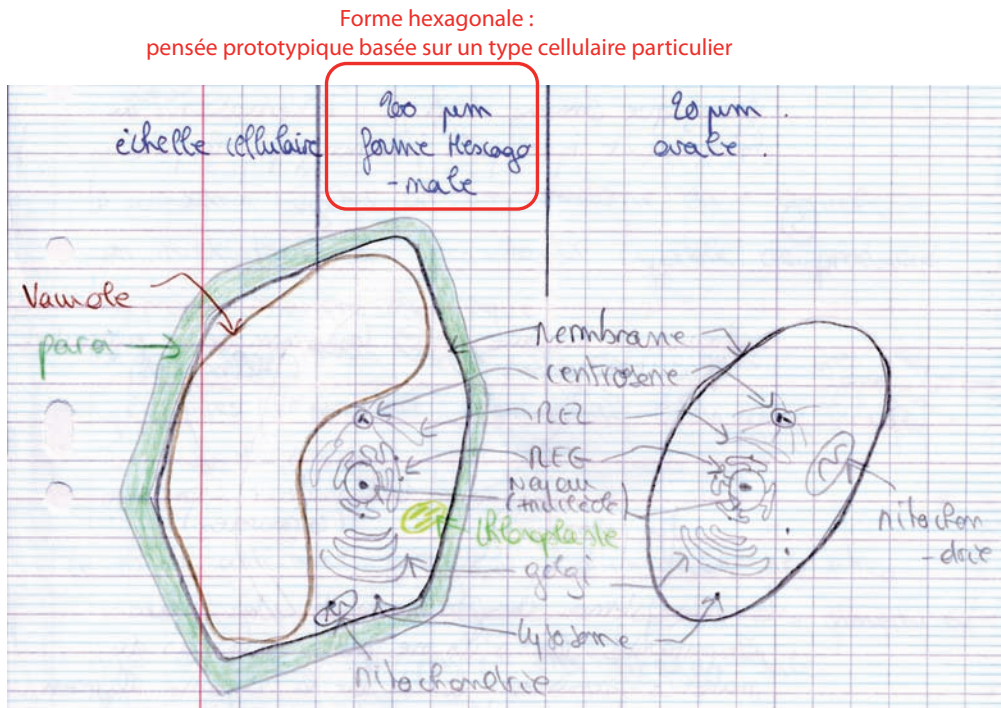 Forme hexagonale :
pensée prototypique basée sur un type cellulaire particulier
échelle cellulaire
200 µm
forme Hexago
-nale
20 µm.
ovale.
Vacuole
paroi
Membrane
centrosome
REL
REG
Noyau
(+nucléole)
Chloroplaste
golgi
lysosome
mitochondrie
mitochon
-drie